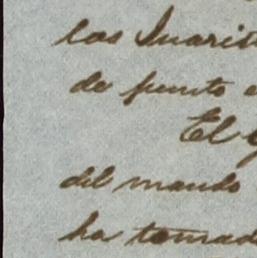 los Juarist
de punto
El
del mando
ha tomad